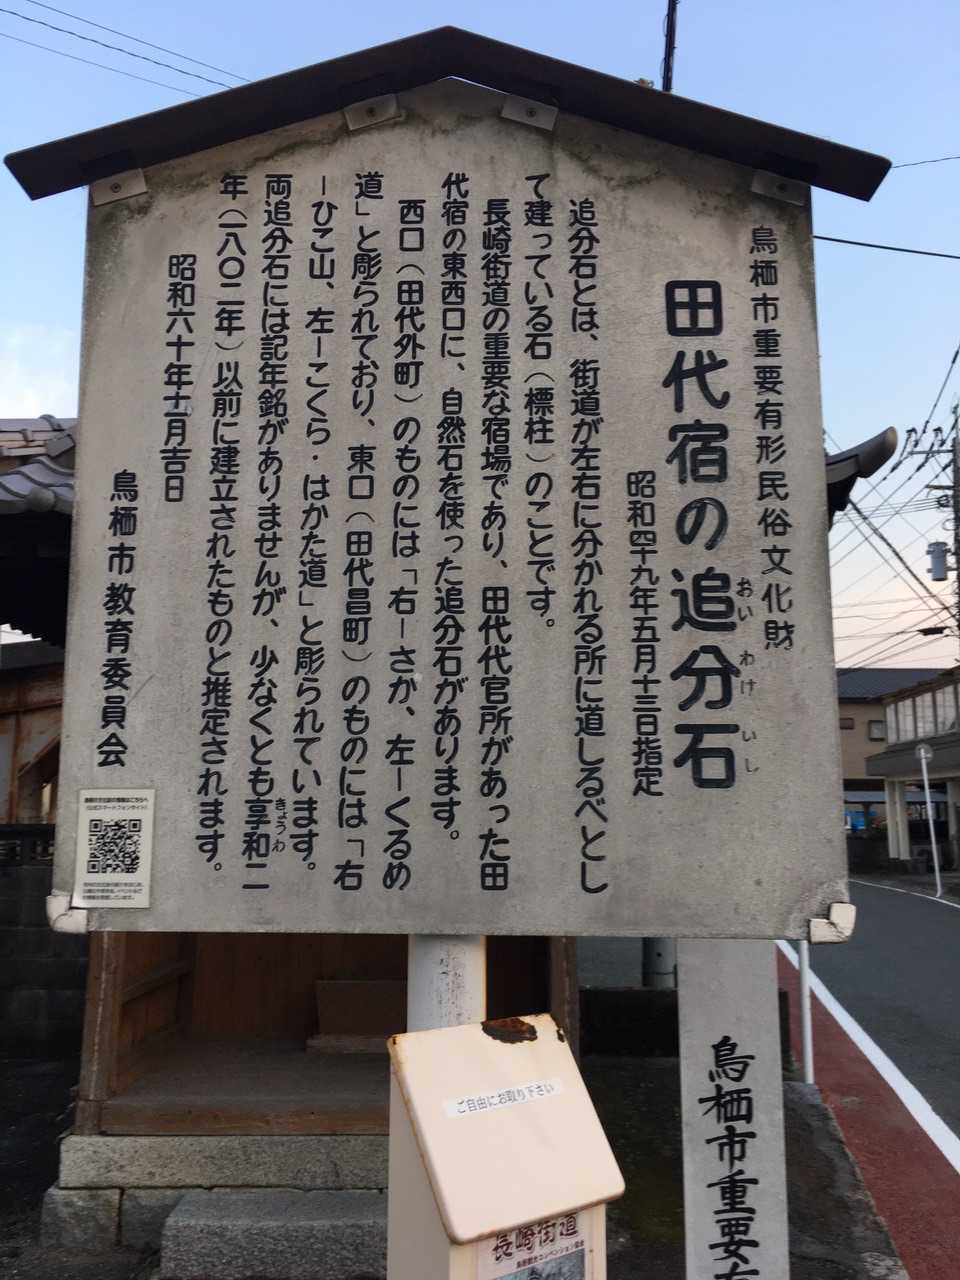 鳥栖市重要有形民俗文化財
田代宿の追分石
おい わけ いし
昭和四十九年五月十三日指定
追分石とは、街道が左右に分かれる所に道しるべとし
て建っている石（標柱）のことです。
長崎街道の重要な宿場であり、田代代官所があった田
代宿の東西口に、自然石を使った追分石があります。
西口（田代外町）のものには「右ーさが、左ーくるめ
道」と彫られており、東口（田代昌町）のものには「右
ーひこ山、左ーこくら・はかた道」と彫られています。
両追分石には記年銘がありませんが、少なくとも享和二
きょうわ
年（一八〇二年）以前に建立されたものと推定されます。
昭和六十年十一月吉日
鳥栖市教育委員会
ご自由にお取り下さい
長崎街道
鳥栖市重要有